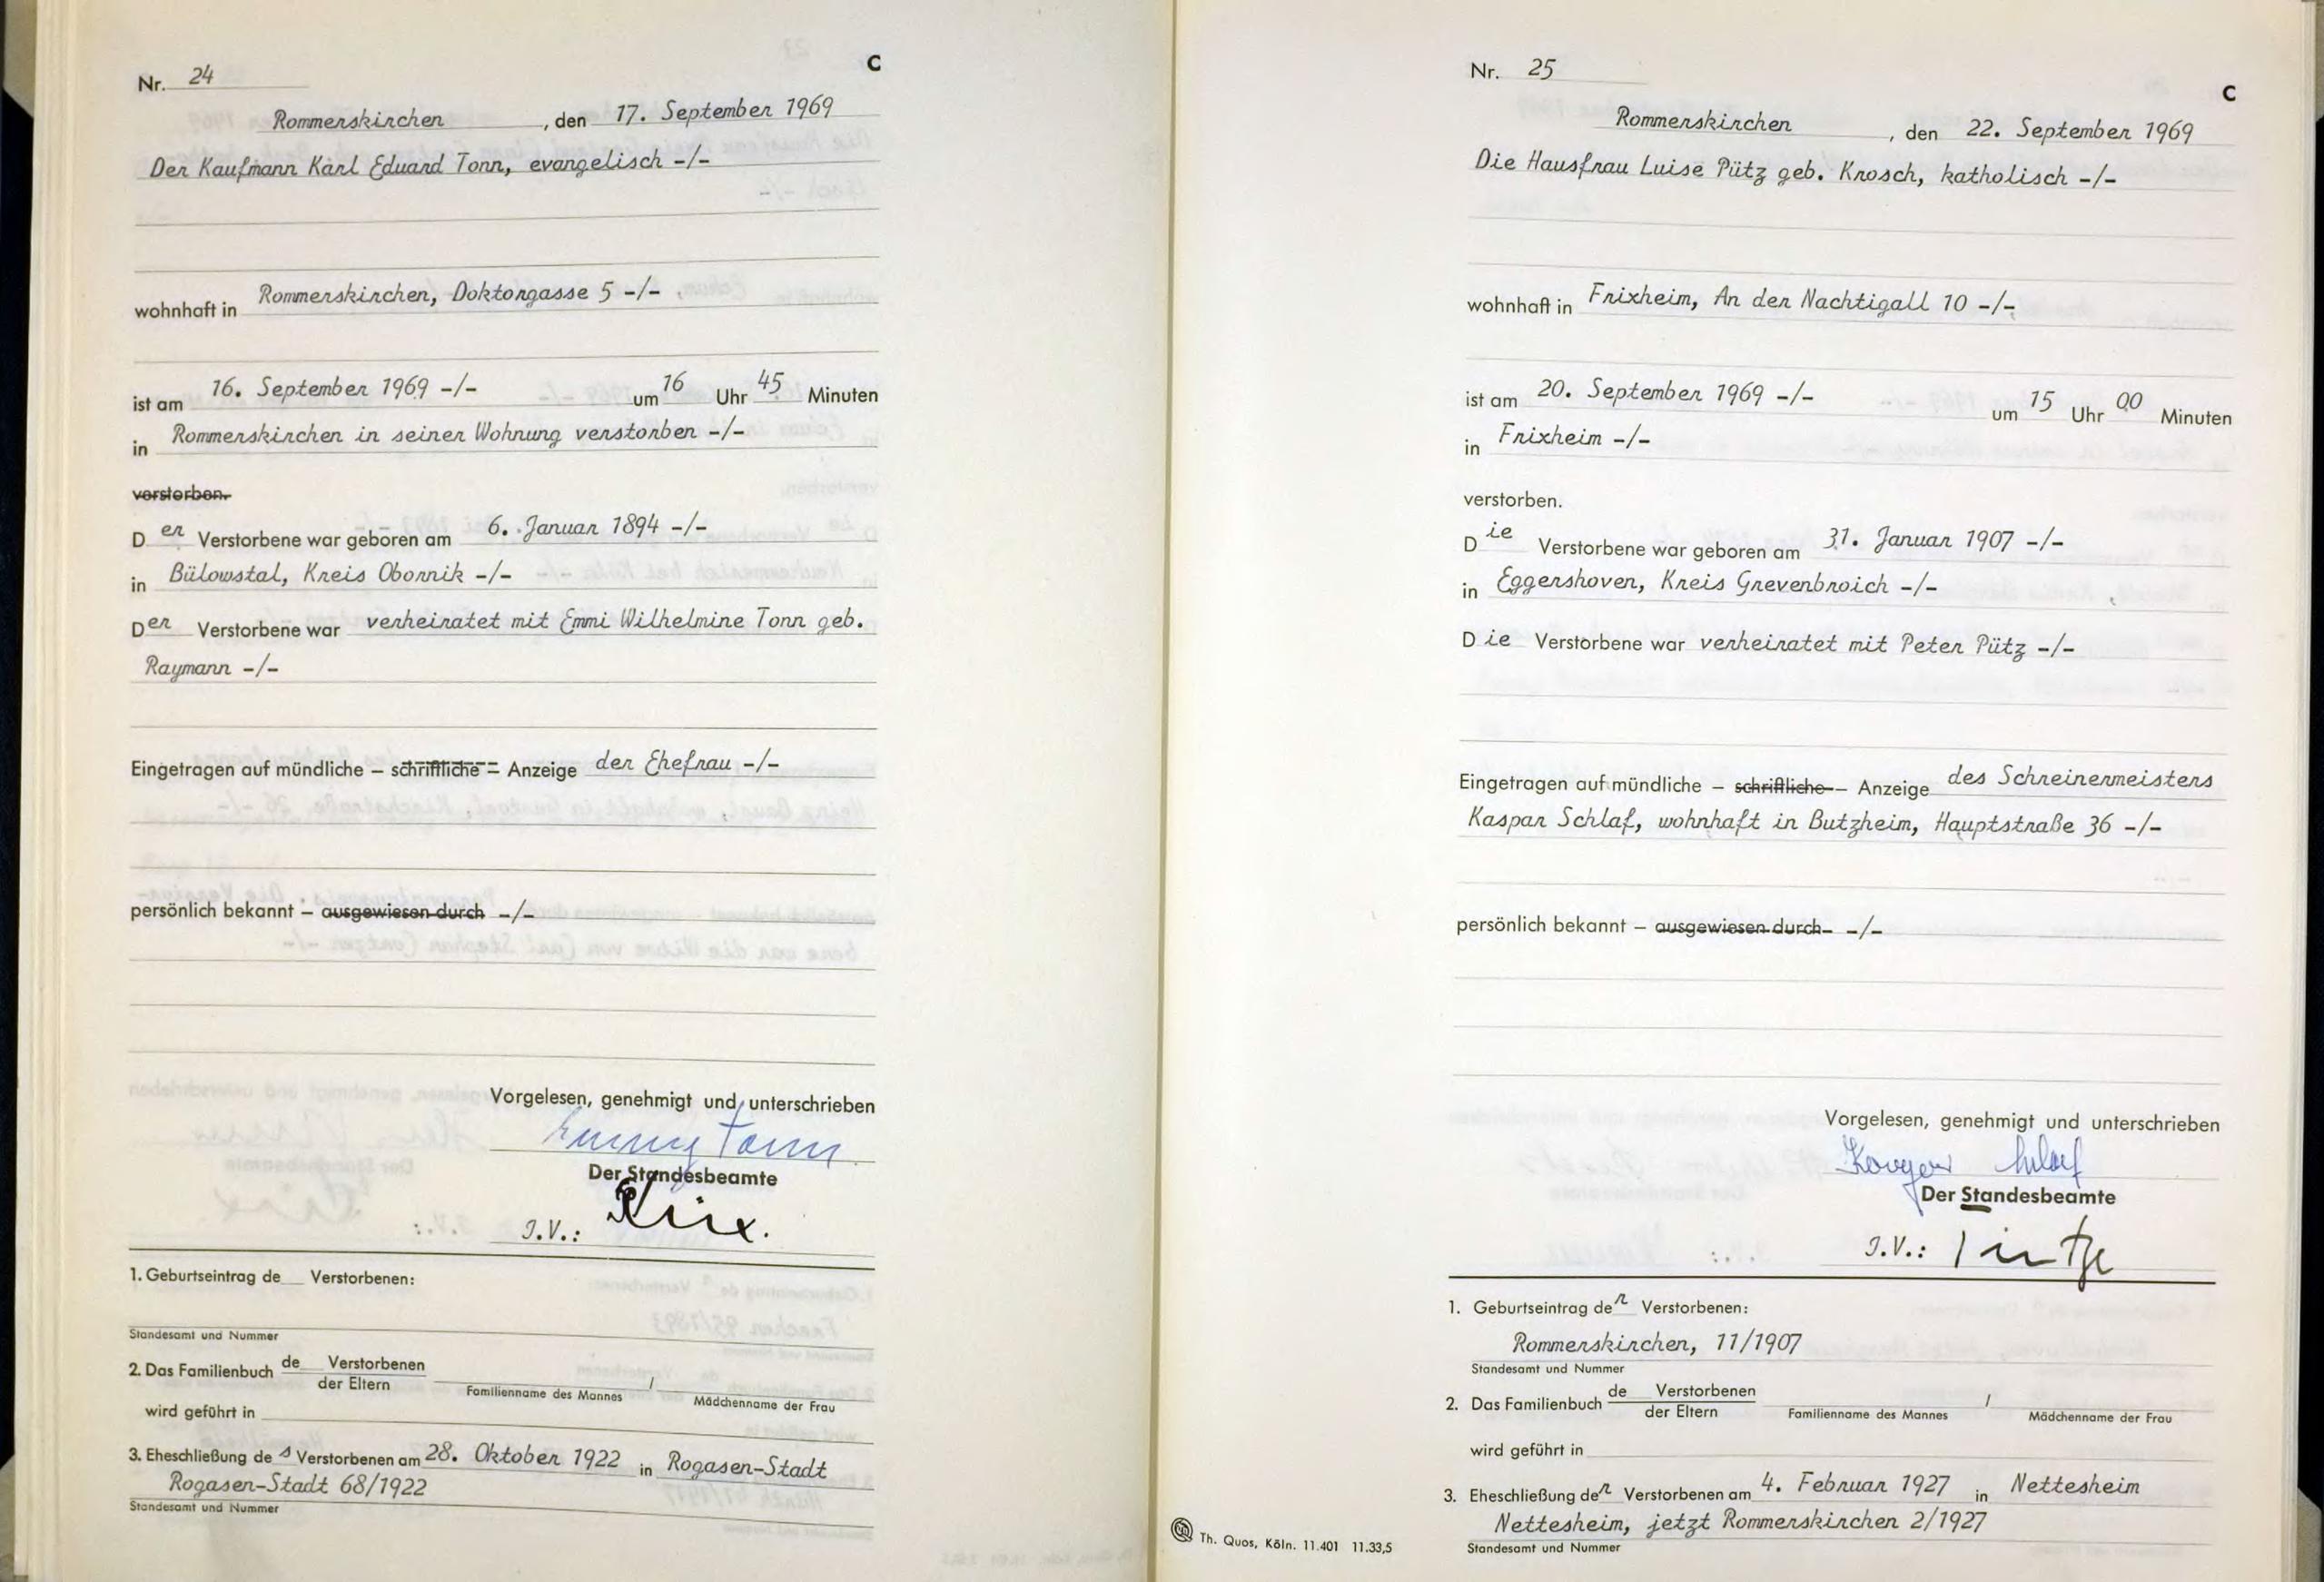 Nr. 24
C
Rommerskirchen, den 17. September 1969
Der Kaufmann Karl Eduard Tonn, evangelisch -/-
wohnhaft in Rommerskirchen, Doktorgasse 5 -/-
ist am 16. September 1969 -/- um 16 Uhr 45 Minuten
in Rommerskirchen in seiner Wohnung verstorben -/-
verstorben.
Der Verstorbene war geboren am 6. Januar 1894 -/-
in Bülowstal, Kreis Obornik -/-
Der Verstorbene war verheiratet mit Emmi Wilhelmine Tonn geb.
Raymann -/-
Eingetragen auf mündliche – schriftliche – Anzeige der Ehefrau -/-
persönlich bekannt – ausgewiesen durch -/-
Vorgelesen, genehmigt und unterschrieben
Emmy Tonn
Der Standesbeamte
J.V.:
1. Geburtseintrag de Verstorbenen:
Standesamt und Nummer
2. Das Familienbuch de Verstorbenen
der Eltern
/
Familienname des Mannes Mädchenname der Frau
wird geführt in
3. Eheschließung des Verstorbenen am 28. Oktober 1922 in Rogasen-Stadt
Rogasen-Stadt 68/1922
Standesamt und Nummer
Nr. 25
C
Rommerskirchen, den 22. September 1969
Die Hausfrau Luise Pütz geb. Krosch, katholisch -/-
wohnhaft in Frixheim, An der Nachtigall 10 -/-
ist am 20. September 1969 -/- um 15 Uhr 00 Minuten
in Frixheim -/-
verstorben.
Die Verstorbene war geboren am 31. Januar 1907 -/-
in Eggershoven, Kreis Grevenbroich -/-
Die Verstorbene war verheiratet mit Peter Pütz -/-
Eingetragen auf mündliche – schriftliche – Anzeige des Schreinermeisters
Kaspar Schlaf, wohnhaft in Butzheim, Hauptstraße 36 -/-
persönlich bekannt – ausgewiesen durch – -/-
Vorgelesen, genehmigt und unterschrieben
Der Standesbeamte
J.V.:
1. Geburtseintrag der Verstorbenen:
Rommerskirchen, 11/1907
Standesamt und Nummer
2. Das Familienbuch de Verstorbenen
der Eltern
/
Familienname des Mannes Mädchenname der Frau
wird geführt in
3. Eheschließung der Verstorbenen am 4. Februar 1927 in Nettesheim
Nettesheim, jetzt Rommerskirchen 2/1927
Standesamt und Nummer
Th. Quos, Köln. 11.401 11.33,5